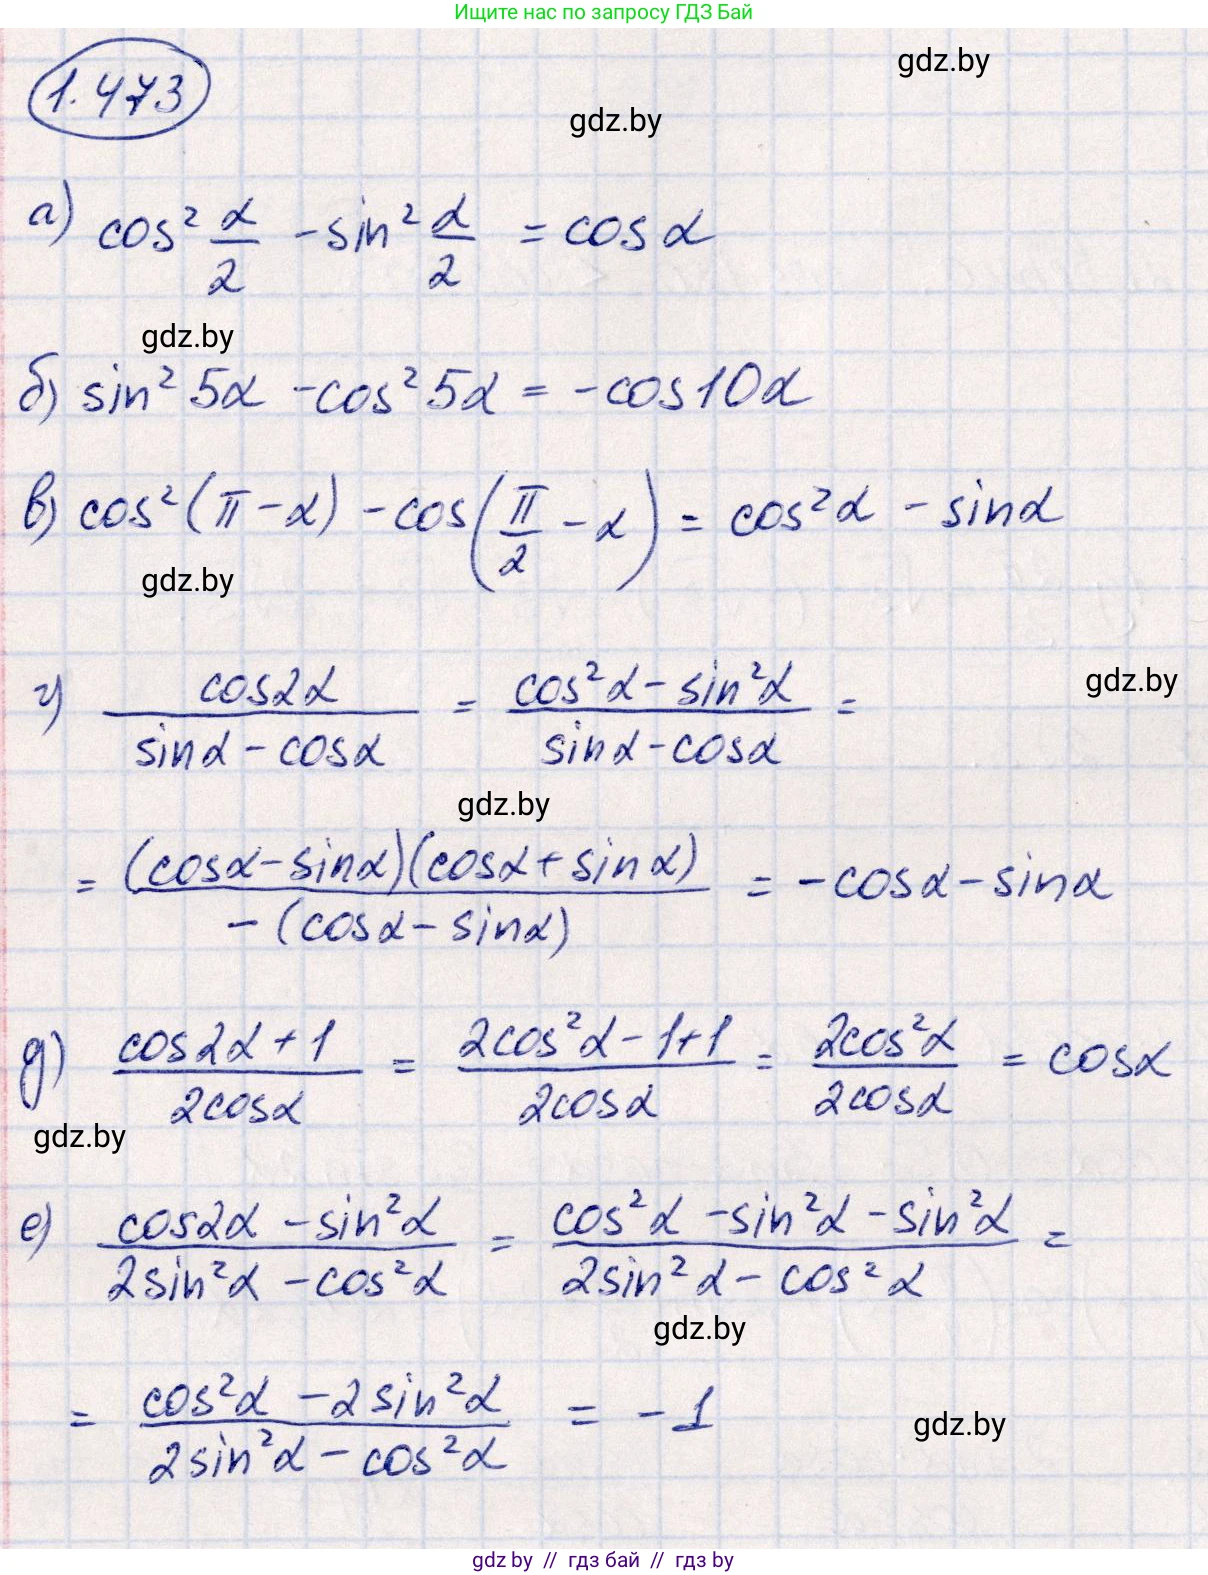 Ищите нас по запросу ГДЗ Бай
1.473
gdz.by
gdz.by
а) cos² α/2 - sin² α/2 = cos α
gdz.by
б) sin² 5α - cos² 5α = - cos10α
в) cos² (π - α) - cos (π/2 - α) = cos²α - sinα
gdz.by
г) cos2α / (sinα - cosα) = (cos²α - sin²α) / (sinα - cosα) =
gdz.by
gdz.by
= (cosα - sinα)(cosα + sinα) / -(cosα - sinα) = - cosα - sinα
д) (cos2α + 1) / 2cosα = (2cos²α - 1 + 1) / 2cosα = 2cos²α / 2cosα = cosα
gdz.by
е) (cos2α - sin²α) / (2sin²α - cos²α) = (cos²α - sin²α - sin²α) / (2sin²α - cos²α) =
gdz.by
= (cos²α - 2sin²α) / (2sin²α - cos²α) = - 1
gdz.by
gdz.by // гдз бай // гдз by